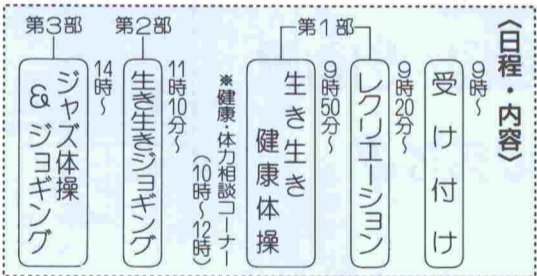 〈日程・内容〉
9時～
受け付け
第1部
9時20分～
レクリエーション
9時50分～
生き生き
健康体操
※健康・体力相談コーナー
（10時～12時）
第2部
11時10分～
生き生きジョギング
第3部
14時～
ジャズ体操
&ジョギング